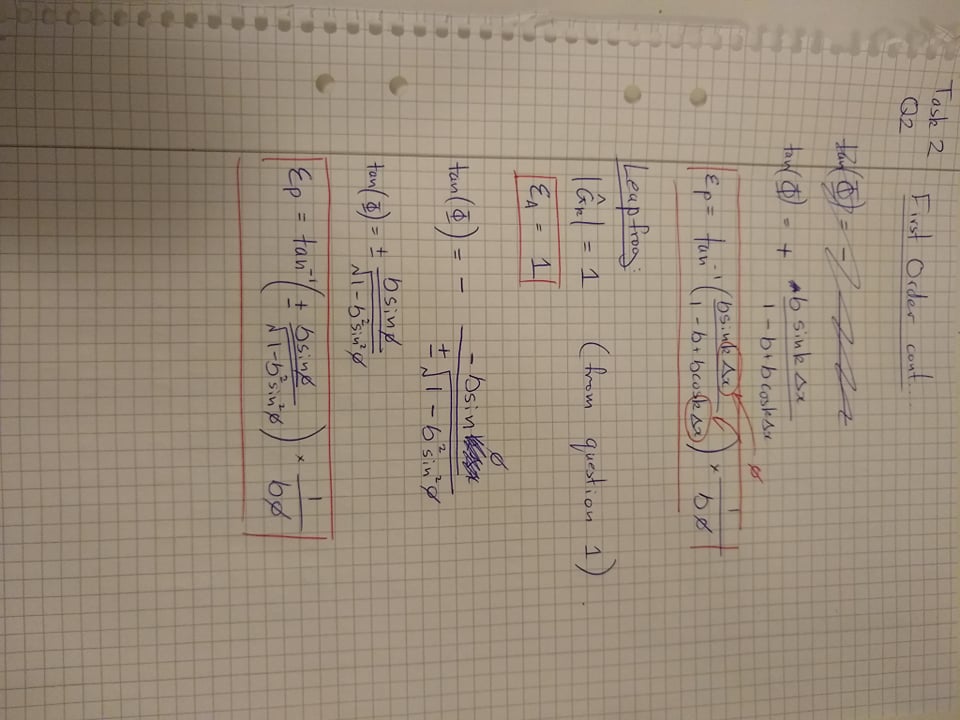 Task 2
Q2 First Order cont...
tan(Φ) = -
tan(Φ) = + b sin kΔx / 1 - b + b cos kΔx
εp = tan⁻¹ ( b sin kΔx / 1 - b + b cos kΔx ) × 1 / bø
ø
Leapfrog:
|Ĝk| = 1 (from question 1)
εA = 1
tan(Φ) = - -b sin ø / ± √1 - b² sin² ø
tan(Φ) = ± b sin ø / √1 - b² sin² ø
εp = tan⁻¹ ( ± b sin ø / √1 - b² sin² ø ) × 1 / bø